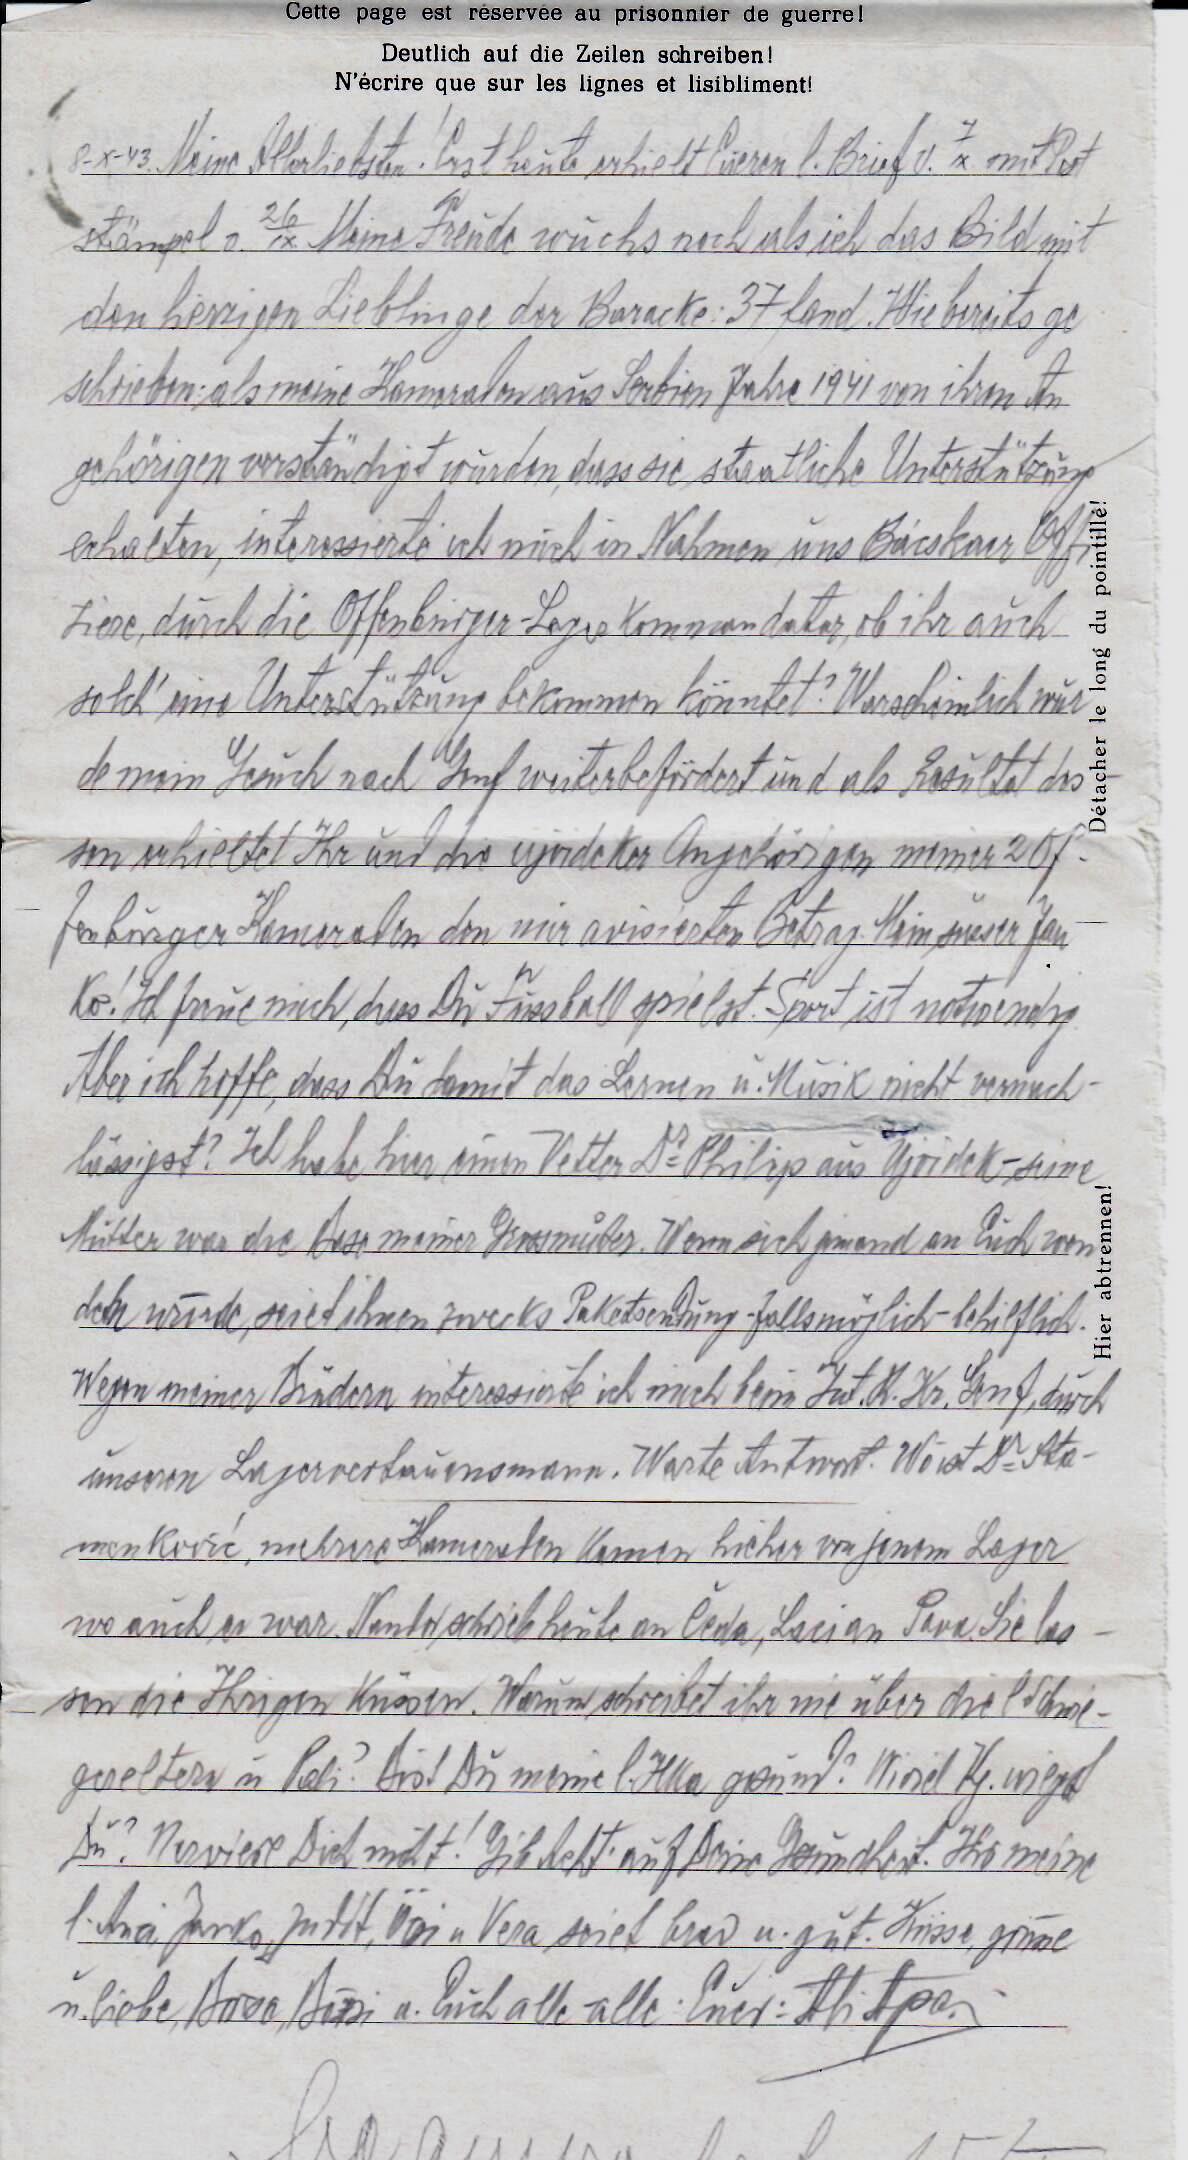 Cette page est réservée au prisonnier de guerre!
Deutlich auf die Zeilen schreiben!
N'écrire que sur les lignes et lisibliment!
8-X-43. Meine Allerliebsten! Erst heute erhielt Eueren l. Brief v. 7/X mit Post
stämpel v. 26/IX Meine Freude wuchs noch als ich das Bild mit
den herzigen Lieblinge der Baracke: 37 fand. Wie bereits ge
schrieben: als meine Kameraden aus Serbien Jahre 1941 von ihren An
gehörigen verständigt wurden, dass sie staatliche Unterstützung
erhalten, interessierte ich mich in Nahmen uns Bácskaer Offi
ziere, durch die Offenburger-Lager Kommandatur, ob ihr auch
solch' eine Unterstützung bekommen könntet? Warscheinlich wur
de mein Gesuch nach Genf weiterbefördert und als Resultat des
sen erhieltet Ihr und die ujvideker Angehörigen meiner 2 Of-
fenburger Kameraden den mir avisierten Betrag. Mein süsser Jan
ko! Ich freue mich, dass Du Fussball spielst. Sport ist notwendig
Aber ich hoffe, dass Du damit das Lernen u. Musik nicht vernach-
lässigst? Ich habe hier einen Vetter Dr Philipp aus Ujvidek - seine
Mutter war die Base meiner Grossmutter. Wenn sich jemand an Euch wen
den würde, seiet ihnen zwecks Paketsendung - falls möglich - behilflich.
Wegen meiner Brüdern interessierte ich mich beim Int. R. Kr. Genf, durch
unseren Lagervertauensmann. Warte Antwort. Wo ist Dr Sta-
menković, mehrere Kameraden kamen hieher von jenem Lager
wo auch er war. schrieb heute an Čeda, Laci an Pava. Sie las-
sen die Ihrigen küssen. Warum schreibet ihr nie über die l. Schwie-
gereltern u Pali? Bist Du meine l. Ilka gesund? Wieviel Kg. wiegst
Du? Nerviere Dich nicht! Gib Acht auf Deine Gesundheit. Ihr meine
l. Anci, Janko, Judit, u Vera seiet brav u. gut. Küsse, grüsse
u. liebe, u. Euch alle-alle: Euer: Ali Apa.
Détacher le long du pointillé!
Hier abtrennen!